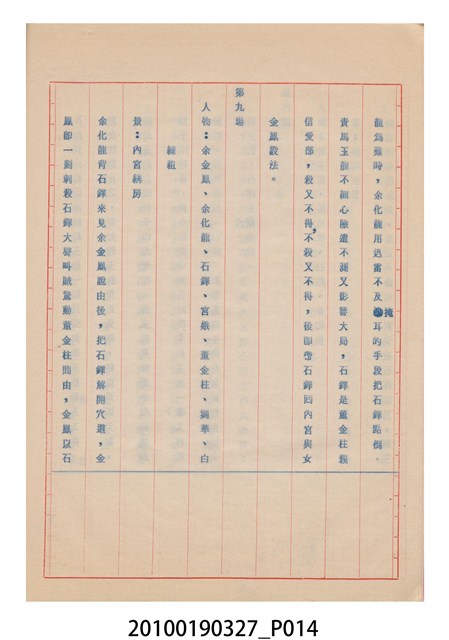 龍為難時，余化龍用迅雷不及掩耳的手段把石鐸點倒。
責馬玉龍不細心險遭不測又影響大局，石鐸是董金柱親
信愛部，殺又不得，不殺又不得，後即帶石鐸回內宮與女
金鳳設法。
第九場
人物：余金鳳、余化龍、石鐸、宮娥、董金柱、興華、白
綠祖
景：內宮病房
余化龍背石鐸來見余金鳳說由後，把石鐸解開穴道，金
鳳即一劍刺殺石鐸大聲叫賊驚動董金柱問由，金鳳以石
20100190327_P014